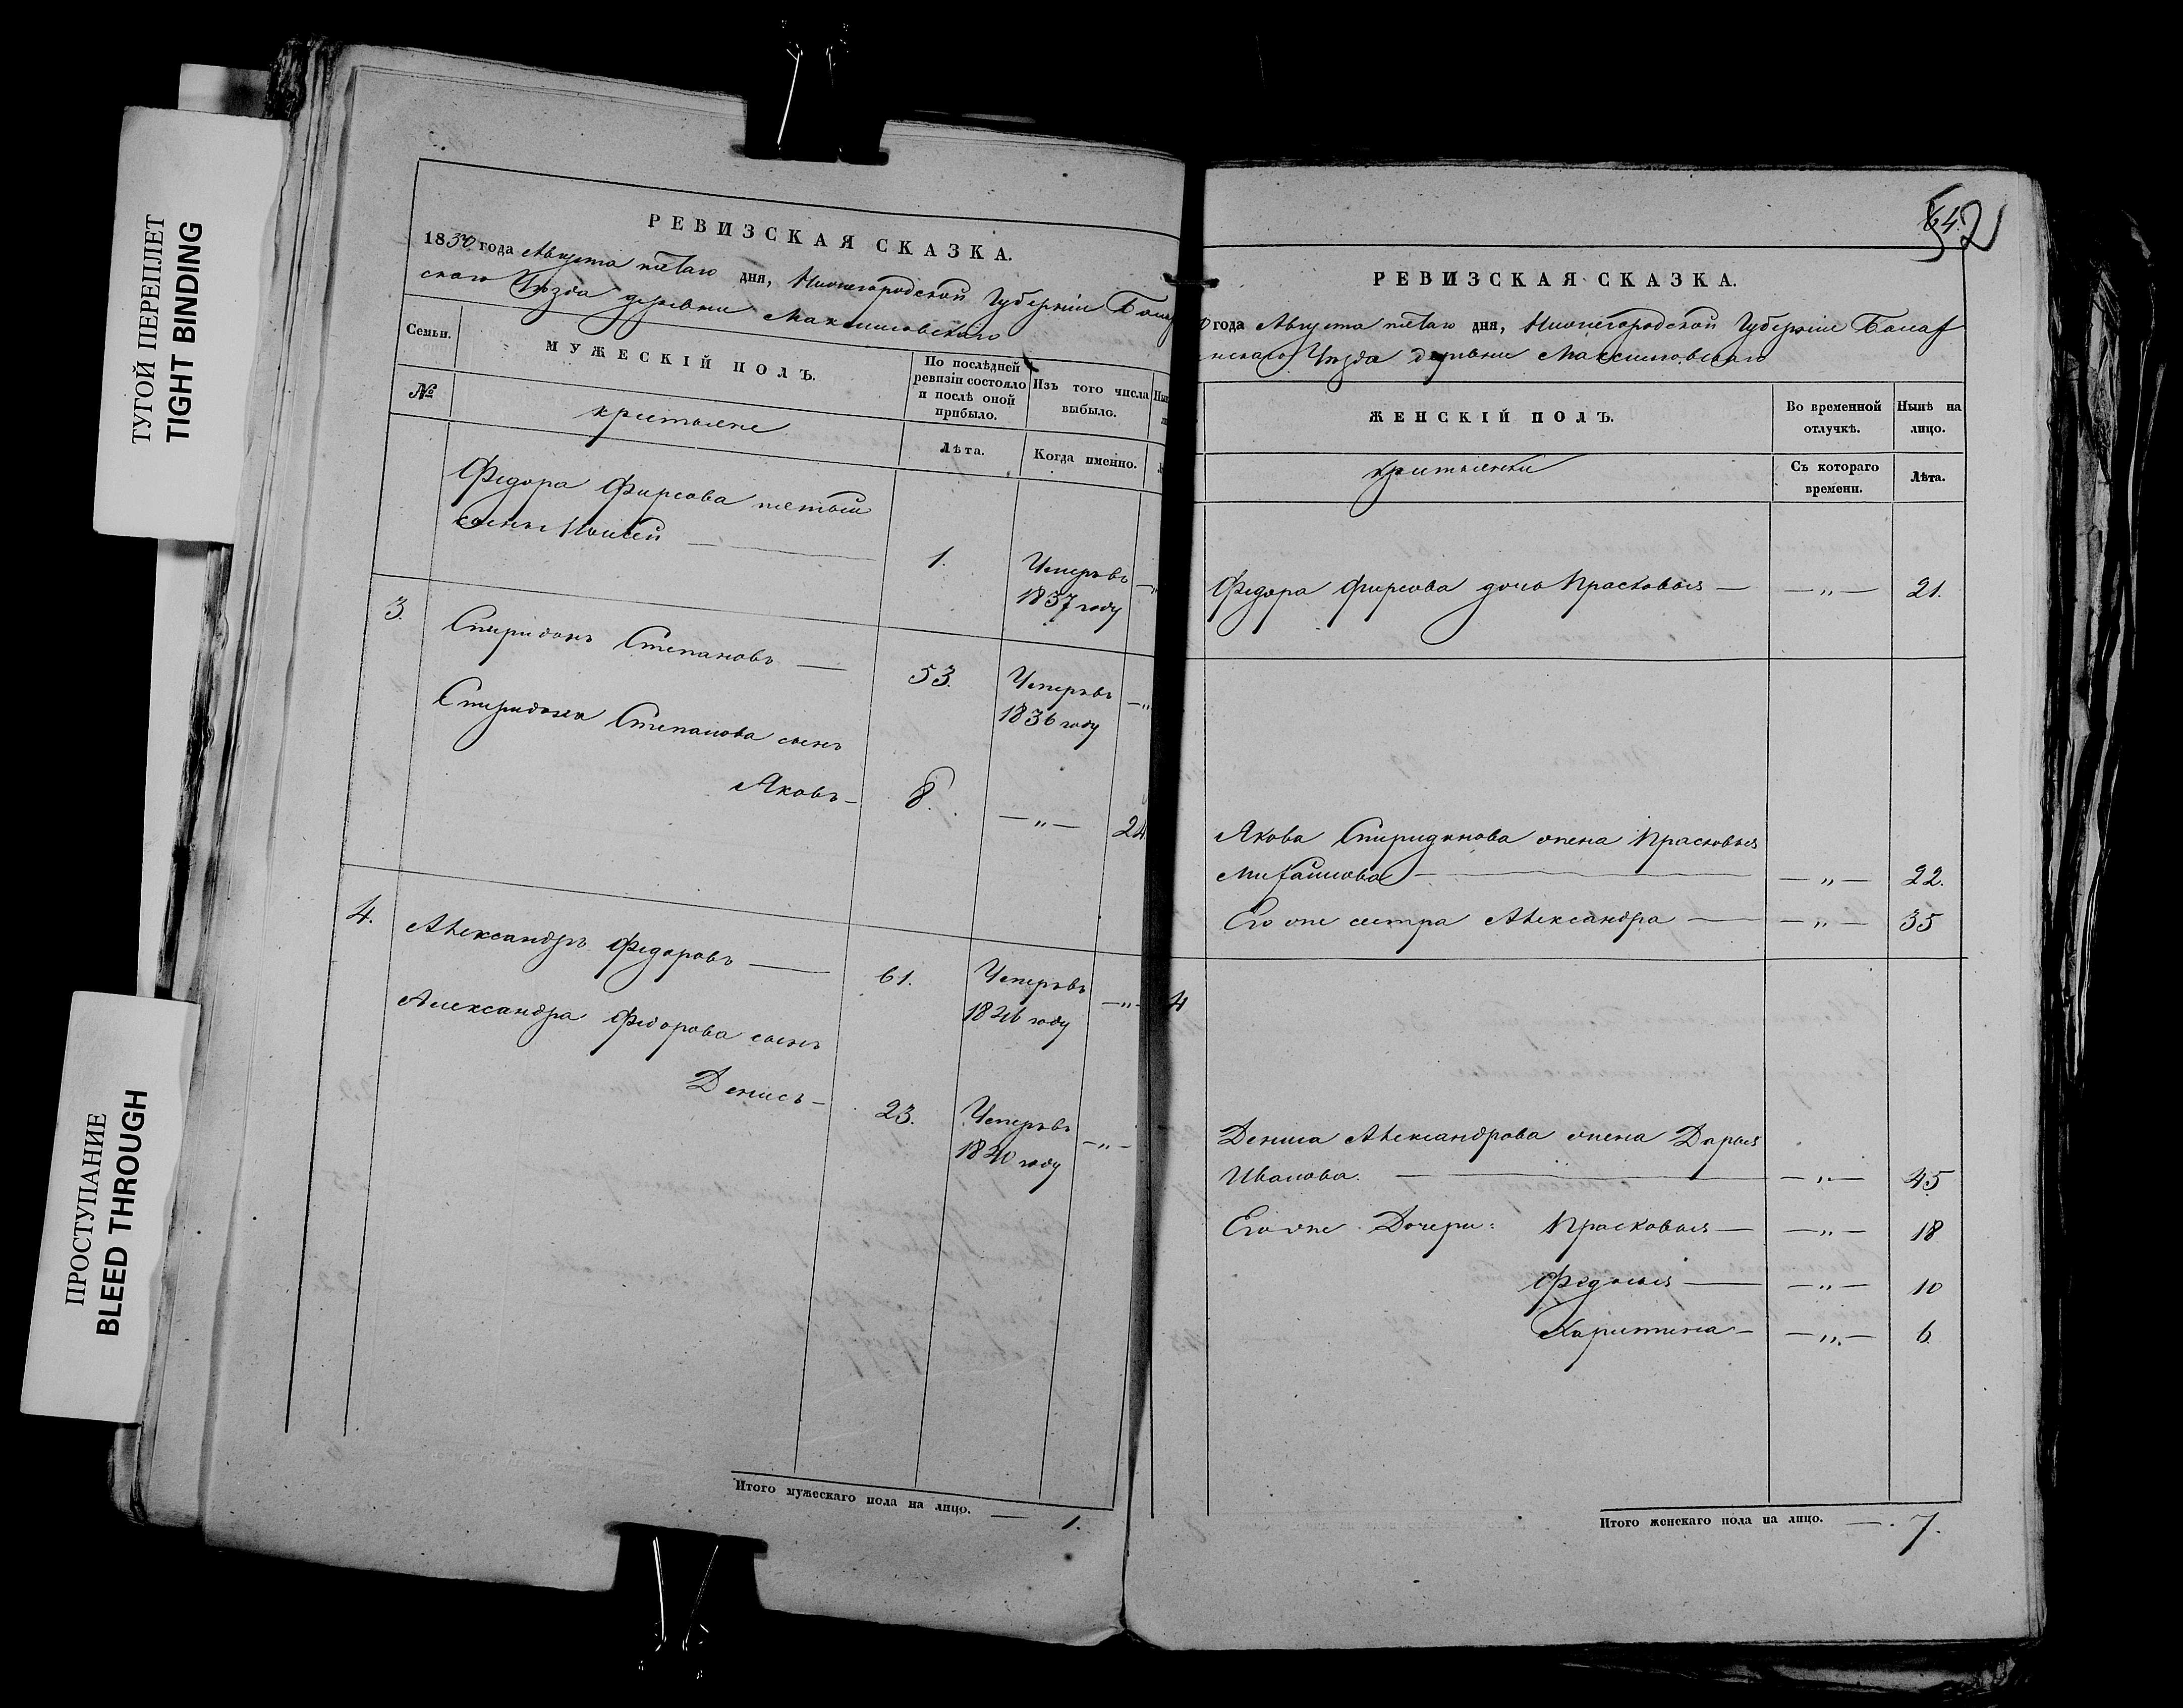 ТУГОЙ ПЕРЕПЛЕТ
TIGHT BINDING
ПРОСТУПАНИЕ
BLEED THROUGH
РЕВИЗСКАЯ СКАЗКА.
1850 года Августа пятаго дня, Нижегородской Губерніи Балах
скаго Уѣзда деревни Максимовскаго
Семьи.
МУЖЕСКІЙ ПОЛЪ.
По послѣдней ревизіи состояло и послѣ оной прибыло.
Изъ того числа выбыло.
№
крестьяне
Лѣта.
Когда именно.
Федора Фирсова пятый
сынъ Моисей — 1. Умеръ въ 1837 году —„
3. Спиридонъ Степановъ — 53. Умеръ въ 1836 году —„
Спиридона Степанова сынъ
Яковъ — 8. —„— 24
4. Александръ Федоровъ — 61. Умеръ въ 1846 году —„—
Александра Федорова сынъ
Денисъ — 23. Умеръ въ 1840 году —„—
Итого мужескаго пола на лицо. — 1.
52
РЕВИЗСКАЯ СКАЗКА.
0 года Августа пятаго дня, Нижегородской Губерніи Балах
нскаго Уѣзда деревни Максимовскаго
ЖЕНСКІЙ ПОЛЪ.
Во временной отлучкѣ.
Нынѣ на лицо.
крестьянки
Съ котораго времени.
Лѣта.
Федора Фирсова дочь Прасковья — —„— 21.
Якова Спиридонова жена Прасковья
Михайлова — —„— 22.
Его же сестра Александра — —„— 35
4
Дениса Александрова жена Дарья
Иванова. — —„— 45
Его же Дочери: Прасковья — —„— 18
Федосья — —„— 10
Харитина — —„— 6.
Итого женскаго пола на лицо. — 7.